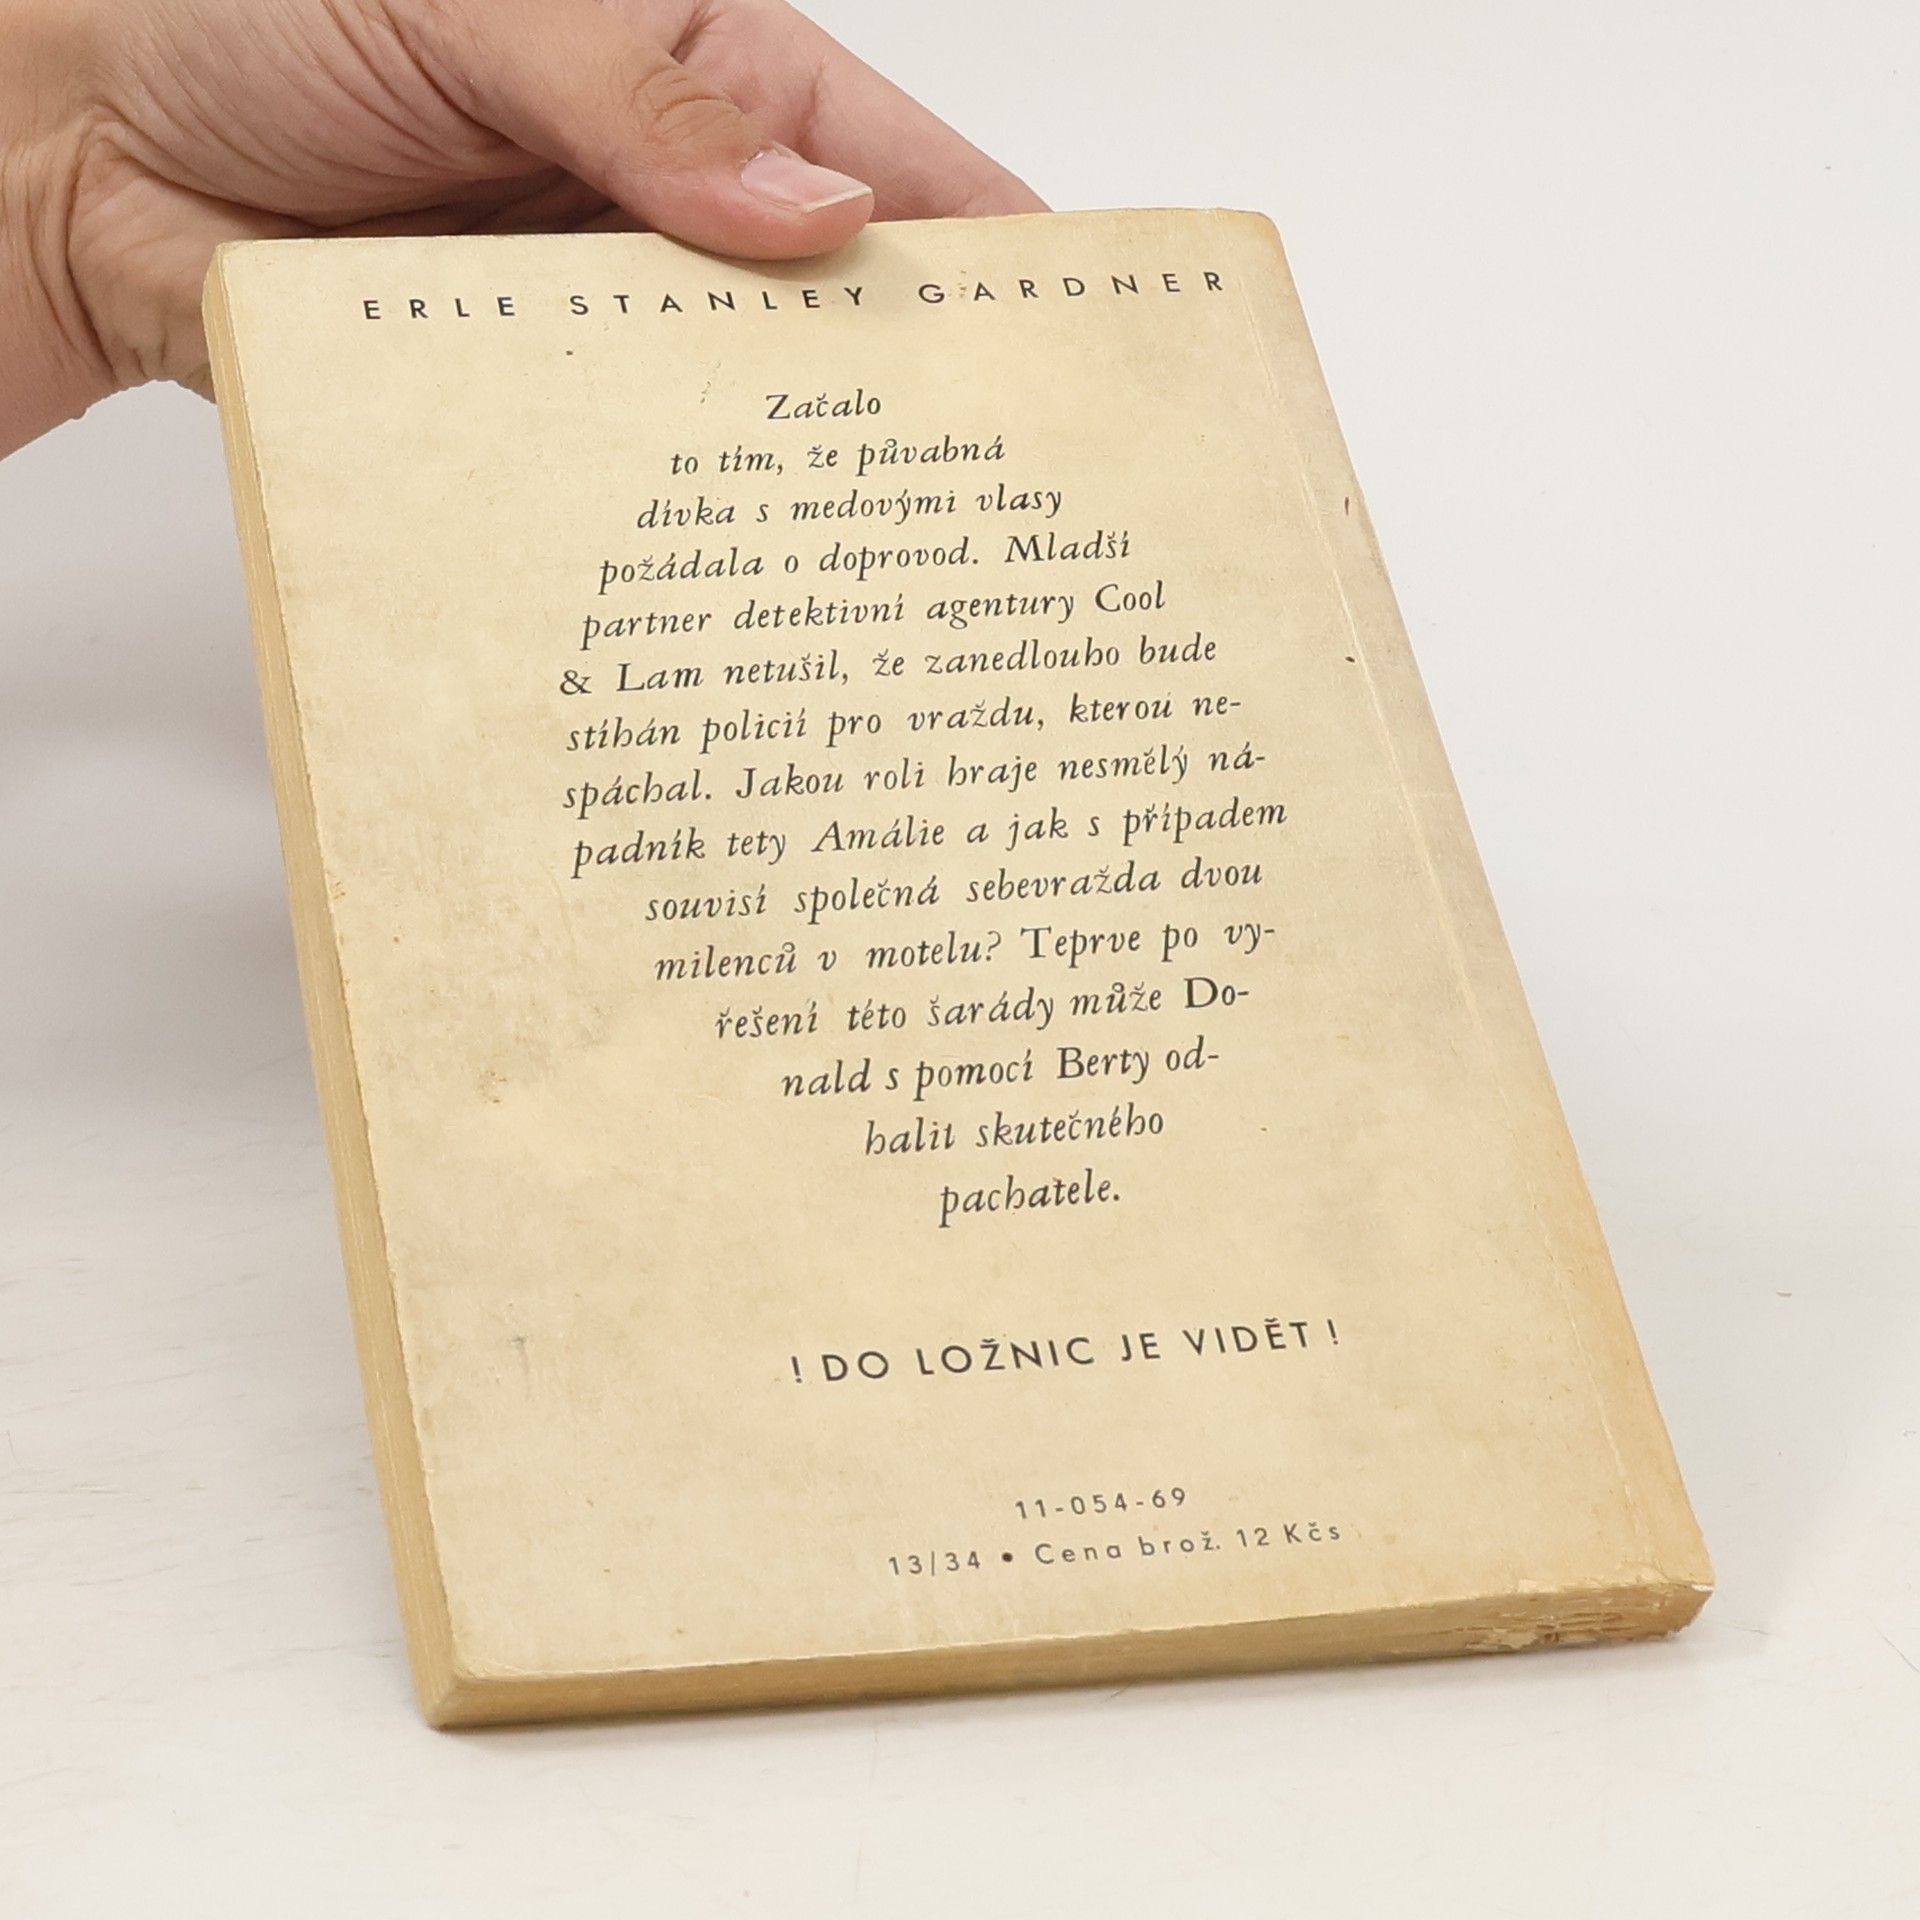 ERLE STANLEY GARDNER
Začalo
to tím, že půvabná
dívka s medovými vlasy
požádala o doprovod. Mladší
partner detektivní agentury Cool
& Lam netušil, že zanedlouho bude
stíhán policií pro vraždu, kterou ne-
spáchal. Jakou roli hraje nesmělý ná-
padník tety Amálie a jak s případem
souvisí společná sebevražda dvou
milenců v motelu? Teprve po vy-
řešení této šarády může Do-
nald s pomocí Berty od-
halit skutečného
pachatele.
! DO LOŽNIC JE VIDĚT !
11-054-69
13/34 • Cena brož. 12 Kčs